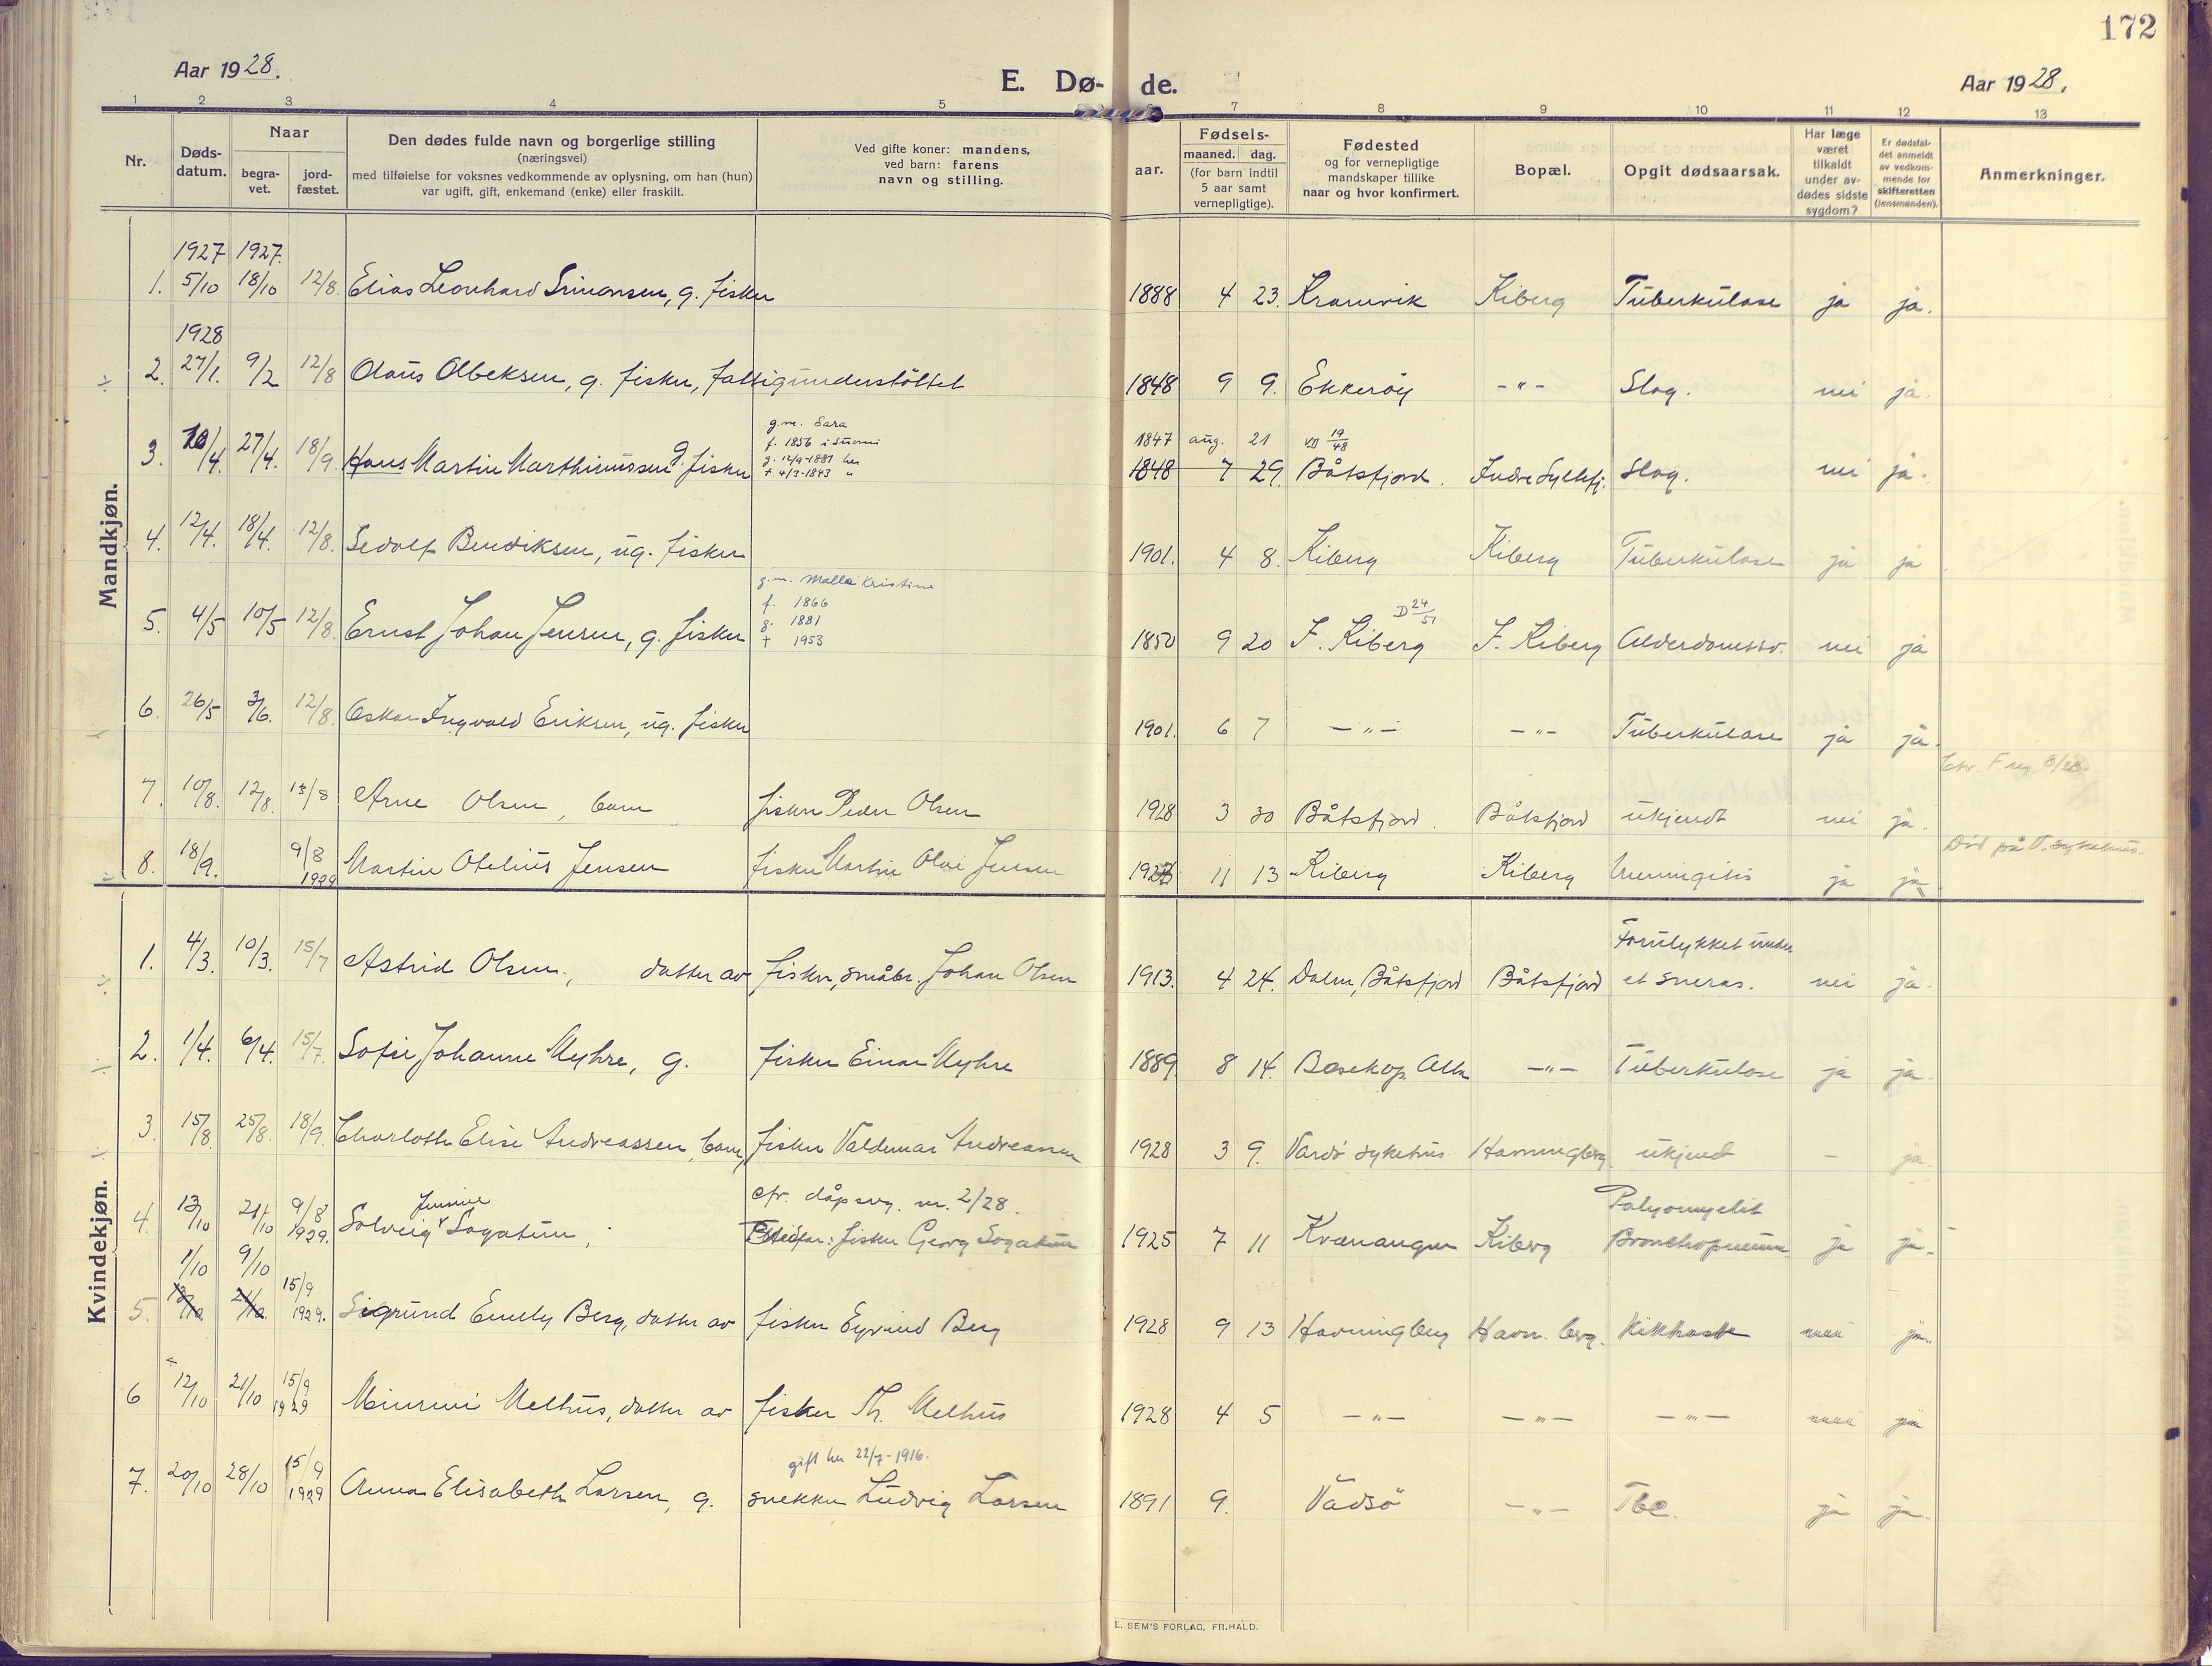 172
Aar 1928. E. Dø- de. Aar 1928.
1 2 3 4 5 7 8 9 10 11 12 13
Nr.
Døds-
datum.
Naar
begra-
vet.
jord-
fæstet.
Den dødes fulde navn og borgerlige stilling
(næringsvei)
med tilføielse for voksnes vedkommende av oplysning, om han (hun)
var ugift, gift, enkemand (enke) eller fraskilt.
Ved gifte koner: mandens,
ved barn: farens
navn og stilling.
aar.
Fødsels-
maaned. dag.
(for barn indtil
5 aar samt
vernepligtige).
Fødested
og for vernepligtige
mandskaper tillike
naar og hvor konfirmert.
Bopæl.
Opgit dødsaarsak.
Har læge
været
tilkaldt
under av-
dødes sidste
sygdom?
Er dødsfal-
det anmeldt
av vedkom-
mende for
skifteretten
(lensmanden).
Anmerkninger.
Mandkjøn.
1927 1927.
1. 5/10 18/10 12/8. Elias Leonhard Simonsen, g. fisker 1888 4 23. Kramvik Kiberg Tuberkulose ja ja.
1928
2. 27/1. 9/2 12/8 Olaus Olbeksen, g. fisker, fattigunderstöttet 1848 9 9. Ekkeröy -"- Slag. nei ja.
g.m. Sara
f. 1856 i
g. 12/9-1881 her
+ 4/3-1843 "
1847 aug. 21 VD 19/48
3. 20/4. 27/4. 18/9. Hans Martin Marthinussen g. fisker 1848 7 29. Båtsfjord. Indre Syltefj. Slag. nei ja.
4. 12/4. 18/4. 12/8. Sedolf Bendiksen, ug. fisker 1901. 4 8. Kiberg Kiberg Tuberkulose ja ja
g.m. Malla Kristine
f. 1866
g. 1881
+ 1953
D 24/51
5. 4/5 10/5 12/8. Ernst Johan Jensen, g. fisker 1850 9 20 I. Kiberg I. Kiberg Alderdomssv. nei ja
6. 26/5 3/6. 12/8. Oskar Ingvald Eriksen, ug. fisker 1901. 6 7 -"- -"- Tuberkulose ja ja.
7. 10/8. 12/8. 13/8 Arne Olsen, barn fisker Peder Olsen 1928 3 30 Båtsfjord. Båtsfjord ukjendt nei ja.
Død på V. sykehus.
8. 18/9. 9/8 1929 Martin Otelius Jensen fisker Martin Olai Jensen 11 13 Kiberg Kiberg Meningitis ja ja
Kvindekjøn.
Forulykket under
1. 4/3. 10/3. 15/7 Astrid Olsen, datter av fisker, småbr. Johan Olsen 1913. 4 24. Dalen, Båtsfjord Båtsfjord et sneras. nei ja.
2. 1/4. 6/4. 15/7. Sofie Johanne Myhre, g. fisker Einar Myhre 1889 8 14. Bosekop. Alta -"- Tuberkulose ja ja.
3. 15/8. 25/8. 18/9. Charlotte Elise Andreassen, barn, fisker Valdemar Andreassen 1928 3 9. Vardö sykehus Havningberg. ukjendt - ja
Jensine
cfr. dåpsreg. nr. 2/28.
Polyomyelit
4. 13/10 21/10 9/8 1929. Solveig Sagatun, fisker Georg Sogatun 1925 7 11 Kvænangen Kiberg Bronchopneumn. ja ja.
1/10 9/10
5. 13/10. 21/10. 15/9 1929. Sigrund Emely Berg, datter av fisker Eyvind Berg 1928 9 13 Havningberg Havn.berg. Kikhoste nei ja.
6 12/10 21/10 15/9 1929 Minrni Melhus, datter av fisker Th. Melhus 1928 4 5 -"- -"- -"- nei ja
gift her 22/7-1916.
7. 20/10 28/10 15/9 1929 Anna Elisabeth Larsen, g. snekker Ludvig Larsen 1891 9. Vadsö -"- Tbc. ja ja.
E. SEM'S FORLAG, FR.HALD.